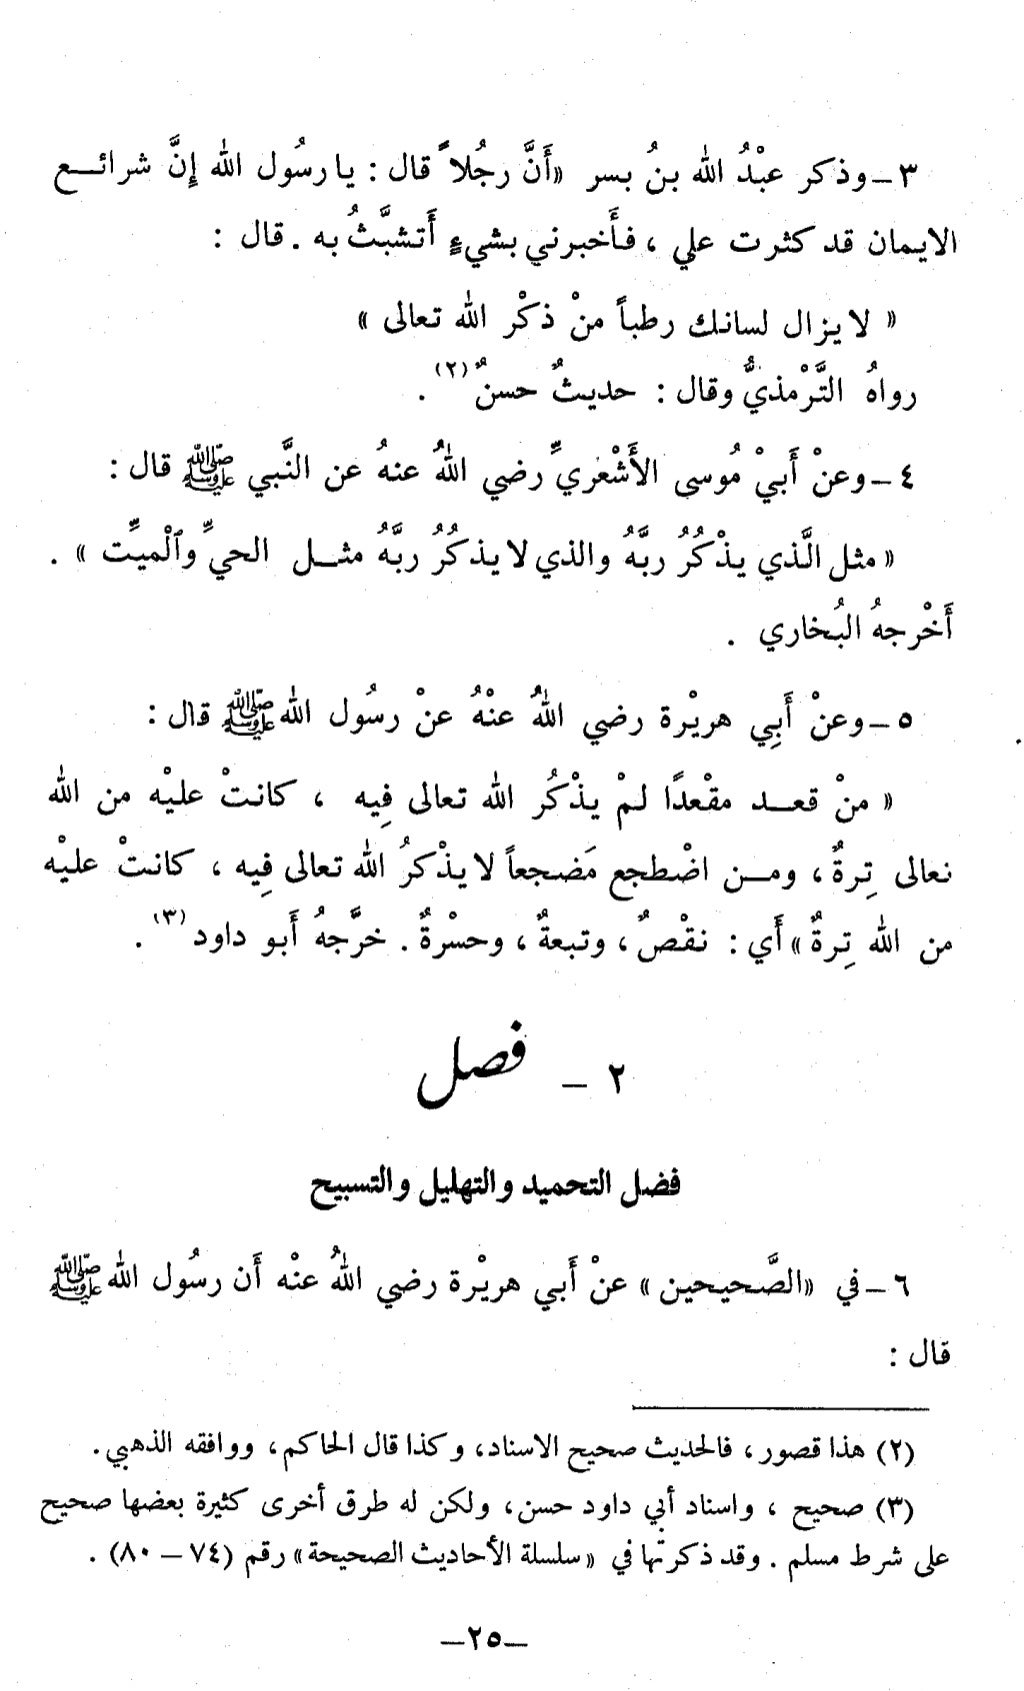 ٣ ـ وذكر عبْدُ الله بنُ بسر «أَنَّ رجُلاً قال : يا رسُول الله إِنَّ شرائع
الايمان قد كثرت علي ، فأَخبرني بشيءٍ أَتشبَّثُ به . قال :
« لا يزال لسانك رطباً منْ ذكْر الله تعالى »
رواهُ التَّرْمذيُّ وقال : حديثٌ حسنٌ (٢) .
٤ ـ وعنْ أَبيْ مُوسى الأَشْعريِّ رضي اللهُ عنهُ عن النَّبي ﷺ قال :
« مثل الَّذي يذْكُرُ ربَّهُ والذي لا يذكُرُ ربَّهُ مثل الحيِّ وٱلْميِّت » .
أَخْرجهُ البُخاري .
٥ ـ وعنْ أَبِي هريْرة رضي اللهُ عنْهُ عنْ رسُول الله ﷺ قال :
« منْ قعد مقْعدًا لمْ يذْكُر الله تعالى فِيه ، كانتْ عليْه من الله
نعالى تِرةٌ ، ومن اضْطجع مَضجعاً لا يذْكرُ الله تعالى فِيه ، كانتْ عليْه
من الله تِرةٌ » أَي : نقْصٌ ، وتبعةٌ ، وحسْرةٌ . خرَّجهُ أَبو داود (٣) .
٢ ـ فصل
فضل التحميد والتهليل والتسبيح
٦ ـ في «الصَّحيحين » عنْ أَبي هريْرة رضي اللهُ عنْه أَن رسُول الله ﷺ
قال :
(٢) هذا قصور ، فالحديث صحيح الاسناد، وكذا قال الحاكم، ووافقه الذهبي.
(٣) صحيح ، واسناد أبي داود حسن، ولكن له طرق أخرى كثيرة بعضها صحيح
على شرط مسلم . وقد ذكرتها في «سلسلة الأحاديث الصحيحة» رقم (٧٤ – ٨٠) .
ـ٢٥ـ